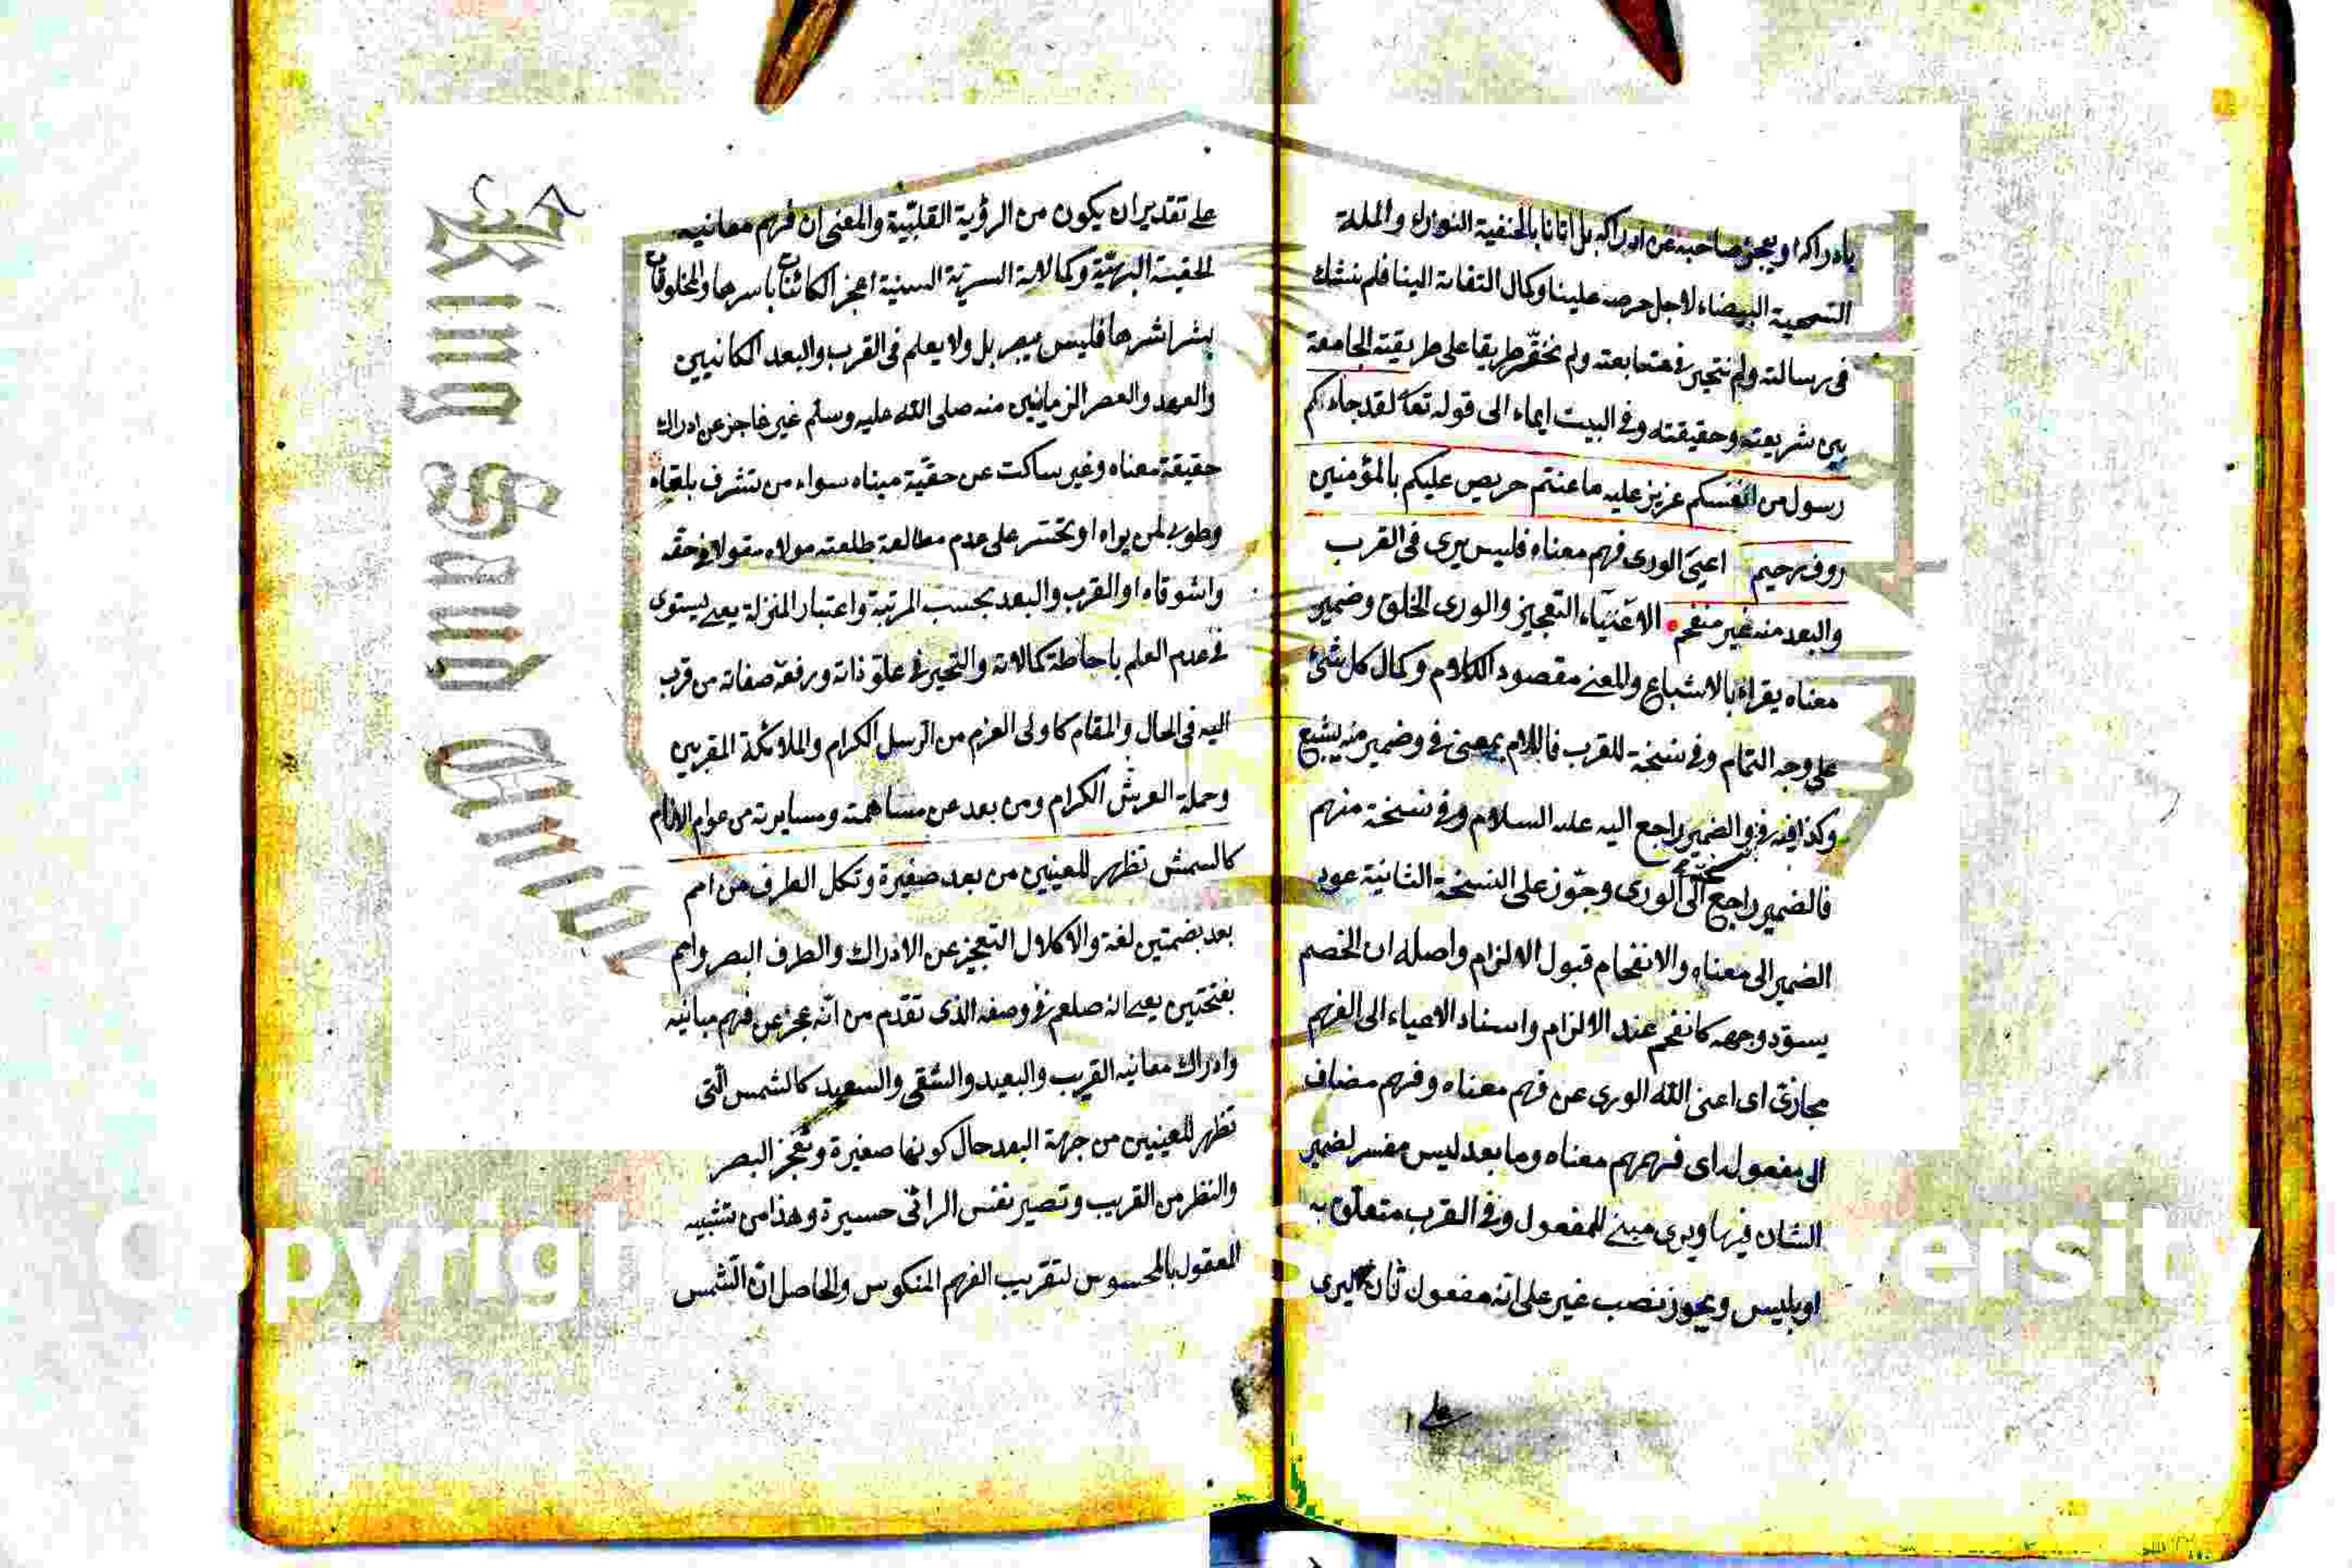 بادراكه او يعجز صاحبه عن ادراكه بل اتانا بالحنفية النوراء والملة
السمحية البيضاء لاجل حرصه علينا وكمال التفاته الينا فلم نشك
فى رسالته ولم نتحير فى متابعته ولم نختر طريقا على طريقته الجامعة
بين شريعته وحقيقته وفى البيت ايماء الى قوله تعا لقد جاءكم
رسول من انفسكم عزيز عليه ما عنتم حريص عليكم بالمؤمنين
روف رحيم اعيى الورى فهم معناه فليس يرى فى القرب
والبعد منه غير منفحم الاعياء التعجيز والورى الخلق وضمير
معناه يقراء بالاشباع والمعنى مقصود الكلام وكمال كل شئ
على وجه التمام وفى نسخة للقرب فاللام بمعنى فى وضمير منه يشبع
وكذا فيه فى والضمير راجع اليه عليه السلام وفى نسخة منهم
فالضمير راجع الى الورى وجوز على النسخة الثانية عود
الضمير الى معناه والانفحام قبول الالزام واصله ان الخصم
يسود وجهه كالفحم عند الالزام واسناد الاعياء الى الفهم
مجازى اى اعيى الله الورى عن فهم معناه وفهم مضاف
الى مفعوله اى فهمهم معناه وما بعد ليس مفسر لضمير
الشان فيها ويرى مبنى للمفعول وفى القرب متعلق به
او بليس ويجوز نصب غير على انه مفعول ثان ليرى
على
على تقدير ان يكون من الرؤية القلبية والمعنى ان فهم معانيه
الحقيقة البهية وكمالاته السرية السنية اعجز الكائنات باسرها والمخلوقات
بشراشرها فليس يبصر بل ولا يعلم فى القرب والبعد المكانيين
والعهد والعصر الزمانيين منه صلى الله عليه وسلم غير عاجز عن ادراك
حقيقة معناه وغير ساكت عن حقية مبناه سواء من تشرف بلقياه
وطوبى لمن يراه او تحسر على عدم مطالعة طلعته مولاه مقولا فى حقه
واشوقاه او القرب والبعد بحسب المرتبة واعتبار المنزلة يعنى يستوى
فى عدم العلم باحاطة كمالاته والتحير فى علو ذاته ورفعة صفاته من قرب
اليه فى الحال والمقام كاولى العزم من الرسل الكرام والملائكة المقربين
وحملة العرش الكرام ومن بعد عن مساهمته ومسايرته من عوام الانام
كالشمش تظهر للعينين من بعد صغيرة وتكل الطرف من امم
بعد بضمتين لغة والاكلال التعجيز عن الادراك والطرف البصر وامم
بفتحتين يعنى انه صلعم فى وصفه الذى تقدم من انه عجز عن فهم مبانيه
وادراك معانيه القريب والبعيد والشقى والسعيد كالشمس التى
تظهر للعينين من جهة البعد حال كونها صغيرة وتعجز البصر
والنظر من القريب وتصير نفس الرائى حسيرة وهذا من تشبيه
المعقول بالمحسوس لتقريب الفهم المنكوس والحاصل ان الشمس
King Saud University
Copyright
ersity